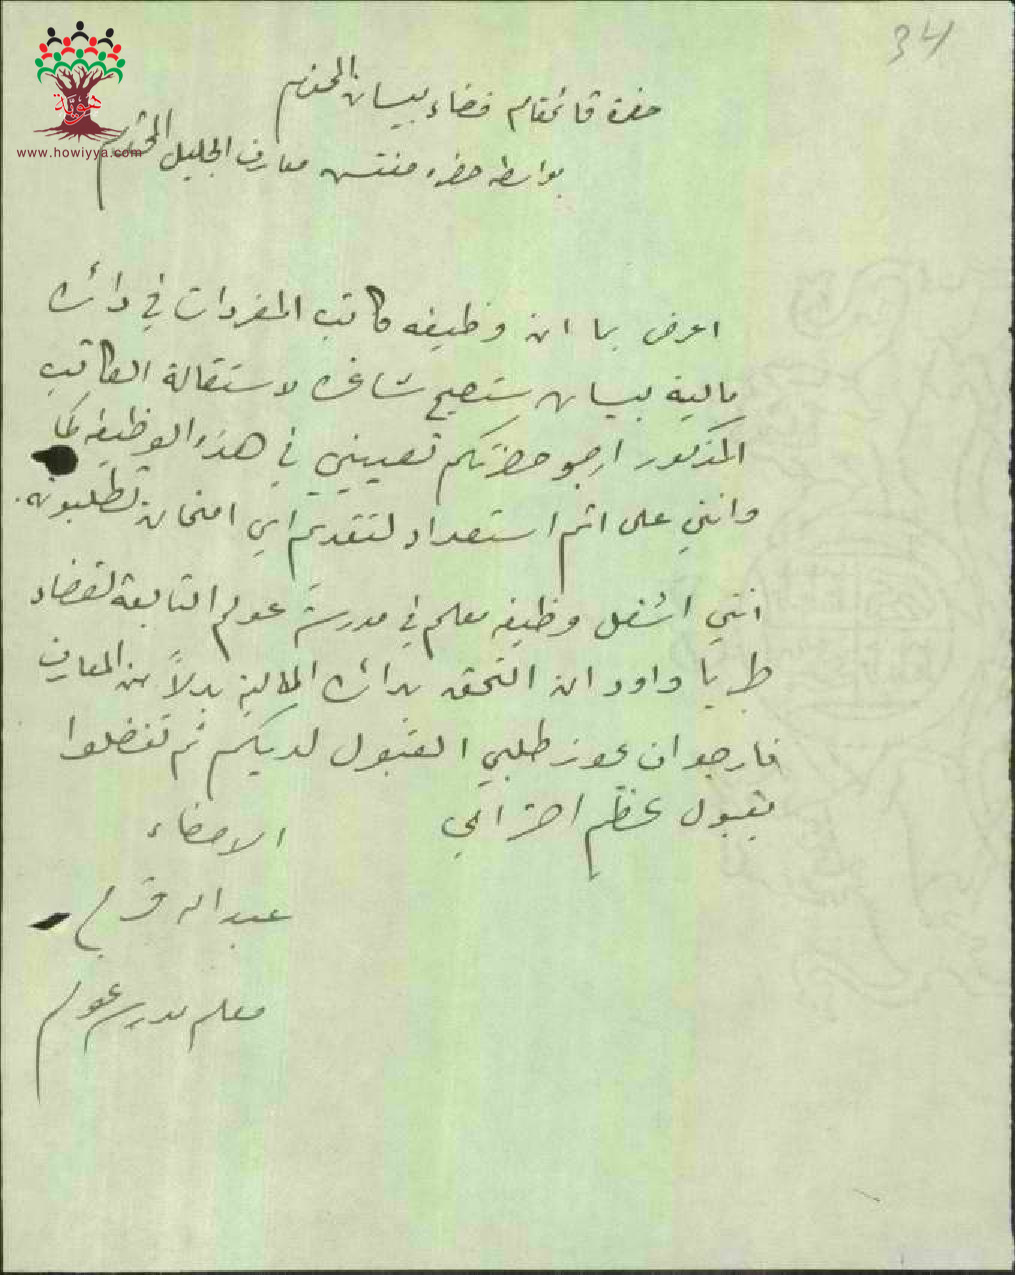 34
هوية
www.howiyya.com
حضرة قائمقام قضاء بيسان المحترم
بواسطة حضرة مفتش معارف الجليل المحترم
اعرض بما ان وظيفه كاتب المفردات في دائرة
مالية بيسان ستصبح شاغرة لاستقالة الكاتب
المذكور ارجو حضرتكم تعييني في هذه الوظيفه كما
وانني على اتم استعداد لتقديم اي امتحان تطلبونه.
انني اشغل وظيفه معلم في مدرسة عولم التابعة لقضاء
طبريا واود ان التحق بدائرة المالية بدلاً من المعارف
فارجو ان يحوز طلبي القبول لديكم ثم تفضلوا
بقبول عظيم احترامي
الامضاء
عبد الله
معلم مدرسة عولم